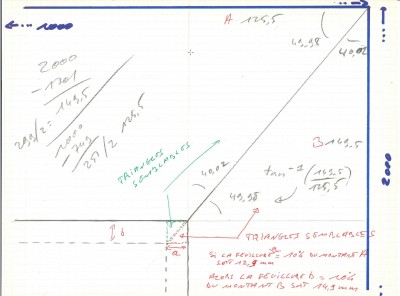 A 125,5
1000
49,98
40,02
2000
- 1701
149,5
1000
- 749
251/2 125,5
TRIANGLES
SEMBLABLES
B 149,5
40,02
tan⁻¹ (149,5/125,5)
49,98
2000
b
a
TRIANGLES SEMBLABLES
SI LA FEUILLURE a = 10% DU MONTANT A
SOIT 12,5 mm
ALORS LA FEUILLURE b = 10%
DU MONTANT B SOIT 14,9 mm